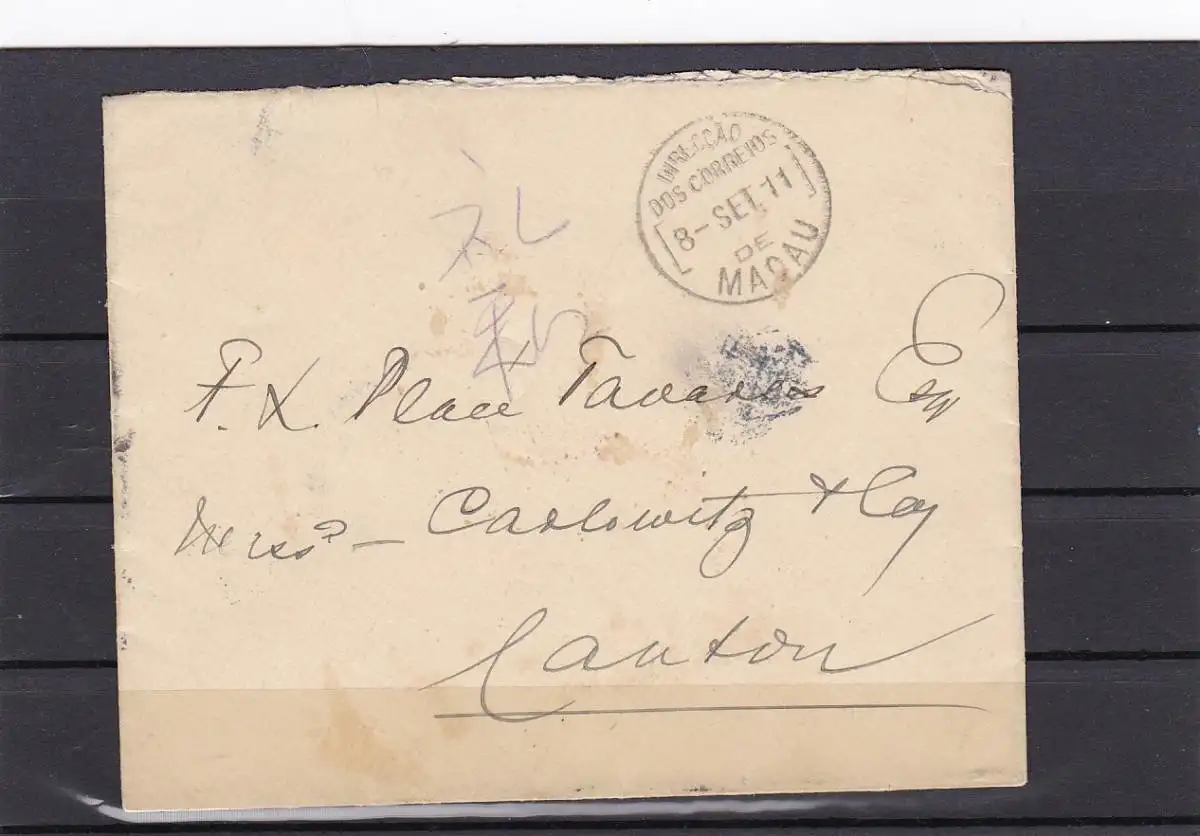 DIRECÇÃO
DOS CORREIOS
8-SET.11
DE
MACAU
礼
和
F. X. Place Tavares Esq
Mess.rs – Carlowitz & Coy
Canton